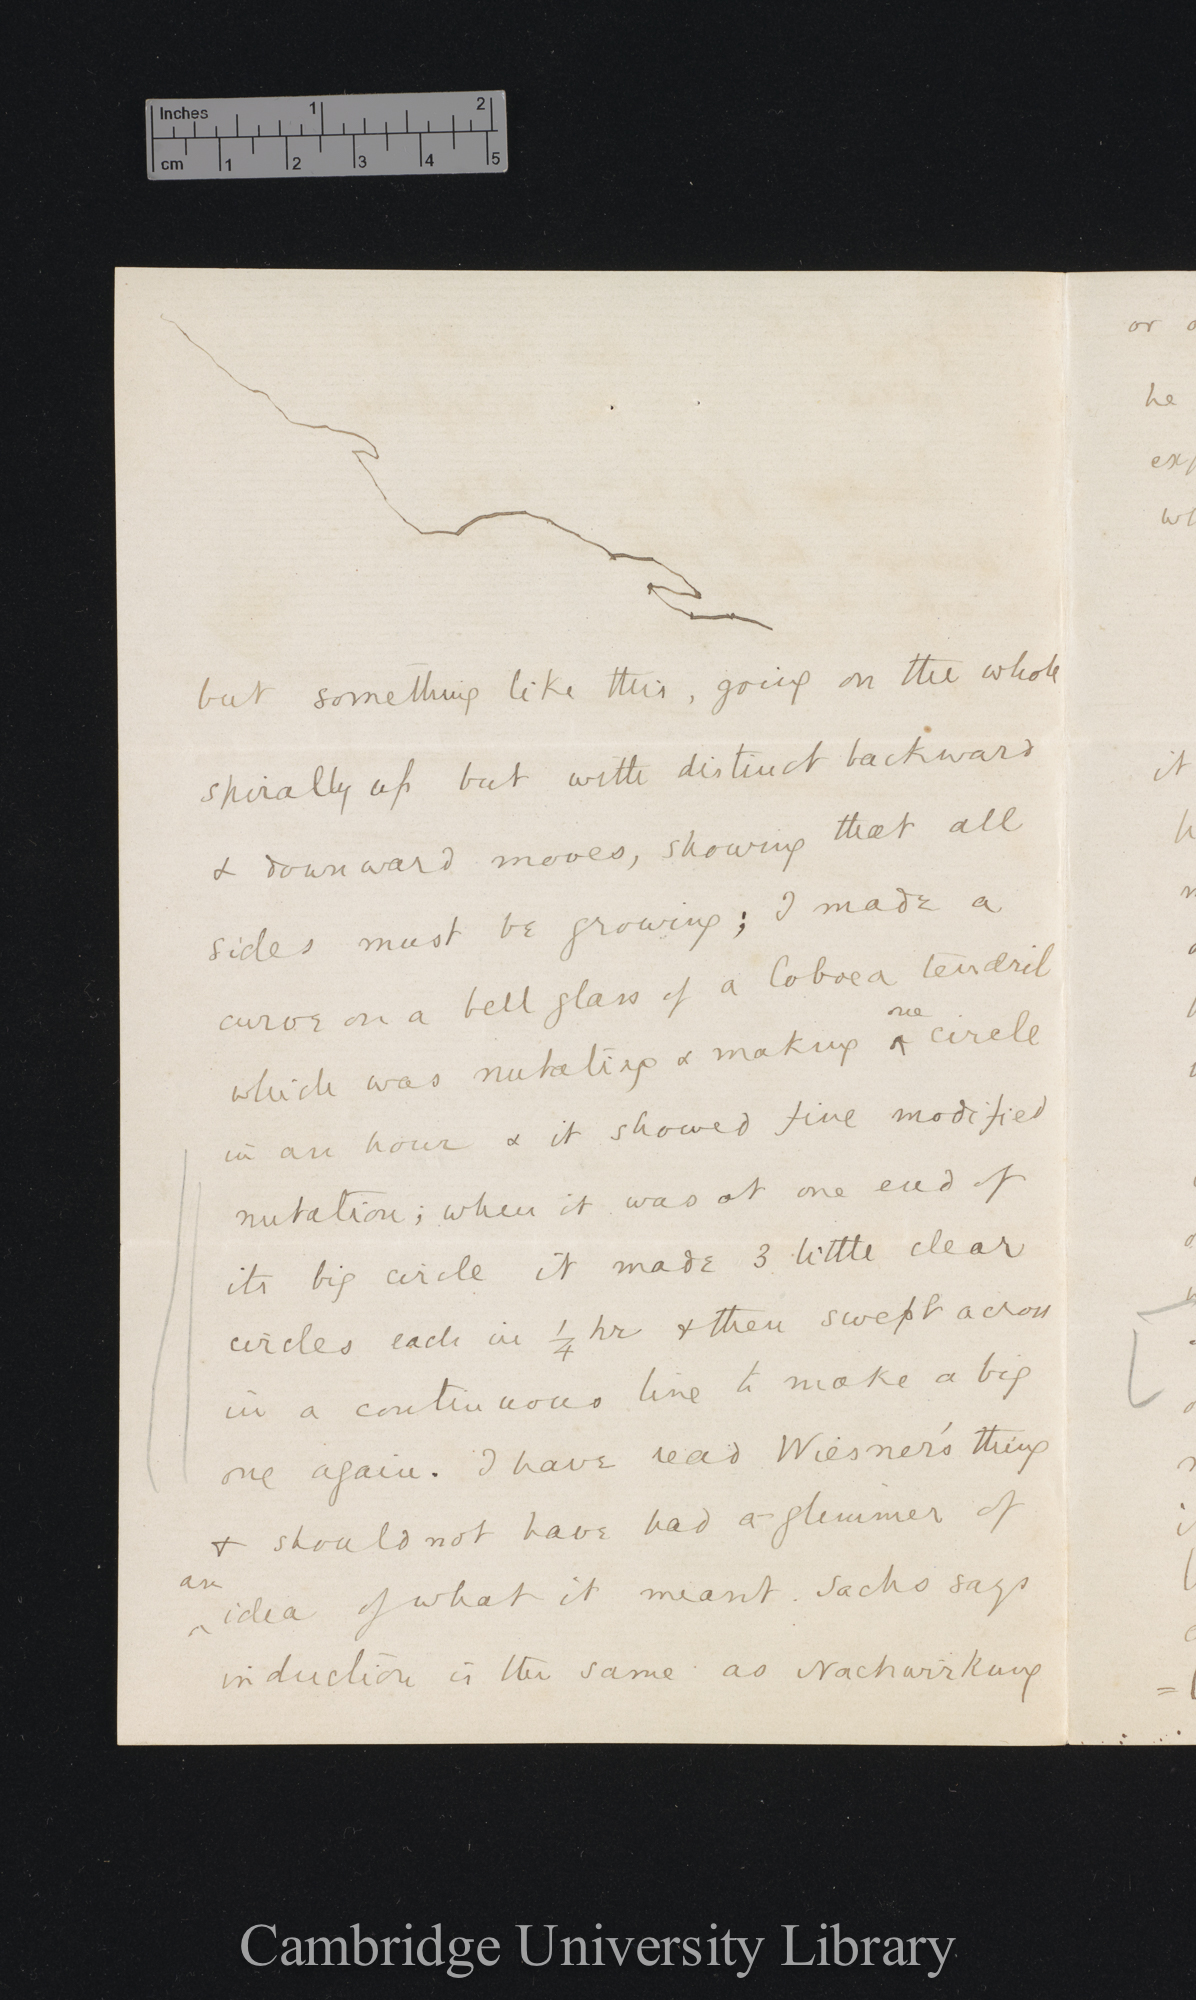 Inches 1 2
cm 1 2 3 4 5
but something like this, going on the whole
spirally up but with distinct backward
& downward moves, showing that all
sides must be growing; I made a
curve on a bell glass of a Coboea tendril
which was nutating & making ^one circle
in an hour & it showed fine modified
nutation; when it was at one end of
its big circle it made 3 little clear
circles each in 1/4 hr & then swept across
in a continuous line to make a big
one again. I have read Wiesner's thing
& should not have had a glimmer of
^an idea of what it meant. Sachs says
induction is the same as Nachwirkung
or
he
it
Cambridge University Library